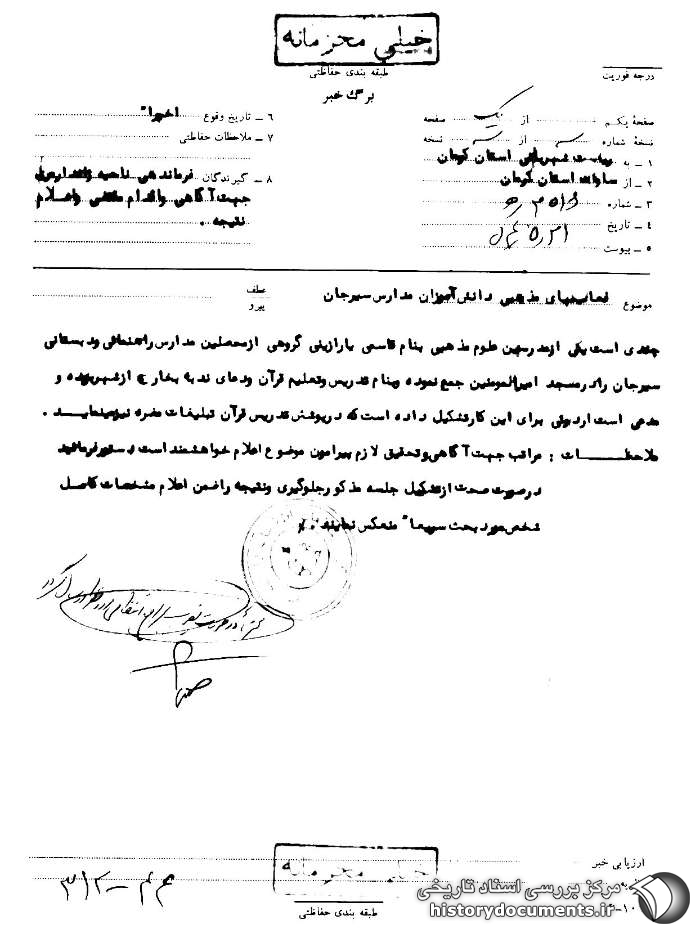 خیلی محرمانه
طبقه بندی حفاظتی
درجه فوریت
برگ خبر
صفحهٔ یکم از یک صفحه
نسخهٔ شماره از نسخه
۱ ـ به ریاست شهربانی استان کرمان
۲ ـ از ساواک استان کرمان
۳ ـ شماره
۴ ـ تاریخ
۵ ـ پیوست
۶ ـ تاریخ وقوع اخیراً
۷ ـ ملاحظات حفاظتی
۸ ـ گیرندگان فرماندهی ناحیه ژاندارمری
جهت آگاهی و اقدام مقتضی و اعلام
نتیجه .
موضوع فعالیتهای مذهبی دانش آموزان مدارس سیرجان
عطف
پیرو
چندی است یکی از مدرسین علوم مذهبی بنام قاسمی پاریزینی گروهی از محصلین مدارس راهنمائی و دبستانی
سیرجان را در مسجد امیرالمومنین جمع نموده و بنام تدریس و تعلیم قرآن و دعای ندبه بخارج از شهر برده و
مدعی است اردوئی برای این کار تشکیل داده است که در پوشش تدریس قرآن تبلیغات مضره نیز مینماید .
ملاحظات : مراتب جهت آگاهی و تحقیق لازم پیرامون موضوع اعلام خواهشمند است دستور فرمائید
در صورت صحت از تشکیل جلسه مذکور جلوگیری و نتیجه را ضمن اعلام مشخصات کامل
شخص مورد بحث سریعاً منعکس نمایند .
ارزیابی خبر
خیلی محرمانه
طبقه بندی حفاظتی
۱۰ـ
۳۱۲ – ۴۴
مرکز بررسی اسناد تاریخی
historydocuments.ir